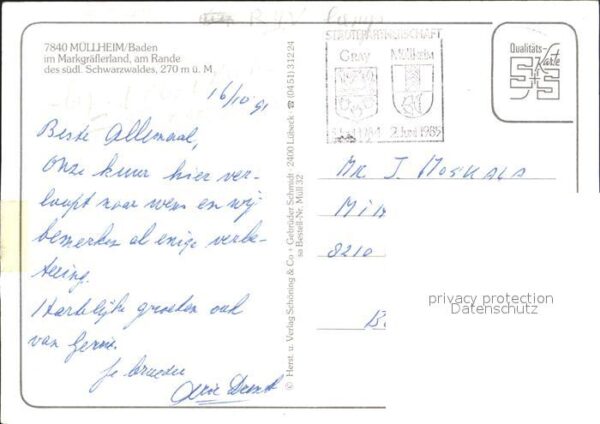 7840 MÜLLHEIM/Baden
im Markgräflerland, am Rande
des südl. Schwarzwaldes, 270 m ü. M.
16/10 91
Beste Allemaal,
Onze kuur hier ver-
loopt naar wens en wij
bemerken al enige verbe-
tering.
Hartelijke groeten ook
van Gerrie.
Je broeder
© Herst. u. Verlag Schöning & Co + Gebrüder Schmidt · 2400 Lübeck · ☎ (0451) 31224
sa Bestell-Nr. Müll 32
STÄDTEPARTNERSCHAFT
GRAY MÜLLHEIM
2. Juni 1985
Qualitäts-
Karte
MR J. MOSKALA
8210
B
privacy protection
Datenschutz